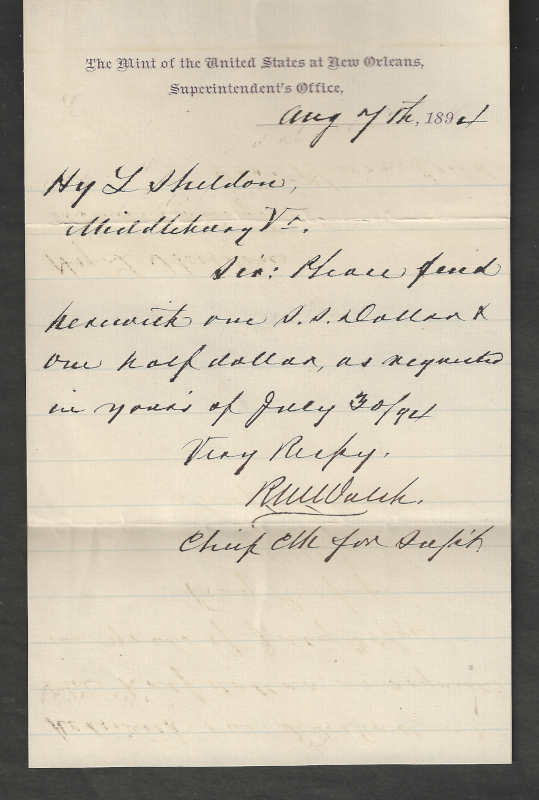 The Mint of the United States at New Orleans,
Superintendent's Office,
Aug 7th, 1894
Hy L Sheldon,
Middlebury Vt.
Sir: Please find
herewith one S.S. Dollar &
one half dollar, as requested
in yours of July 30/94
Very Respy.
Walsh.
Chief Clk for Supt